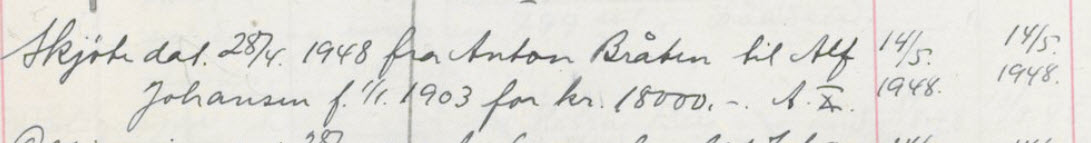 Skjöte dat. 28/4. 1948 fra Anton Bråten til Alf 14/5. 14/5.
Johansen f. 1/1. 1903 for kr. 18000.-. A. X. 1948. 1948.
28/